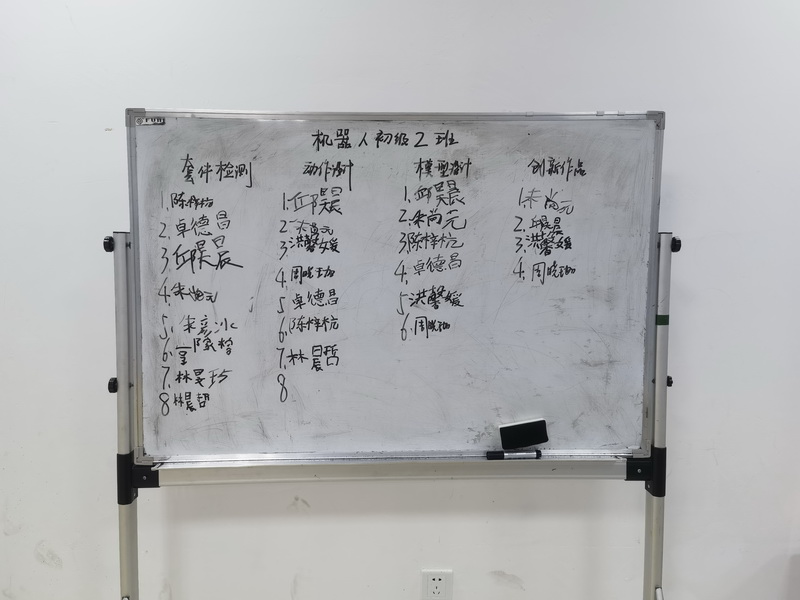 机器人初级2班
套件检测
1.陈梓杭
2.卓德昌
3.邱昊晨
4.朱尚元
5.朱彦冰
6.
7.林旻
8林晨哲
动作设计
1.邱昊晨
2.朱尚元
3.洪馨媛
4.周晓珈
5卓德昌
6.陈梓杭
7.林晨哲
8
模型设计
1.邱昊晨
2.朱尚元
3陈梓杭
4.卓德昌
5洪馨媛
6.周晓珈
创新作品
1.朱尚元
2.邱昊晨
3.洪馨媛
4.周晓珈